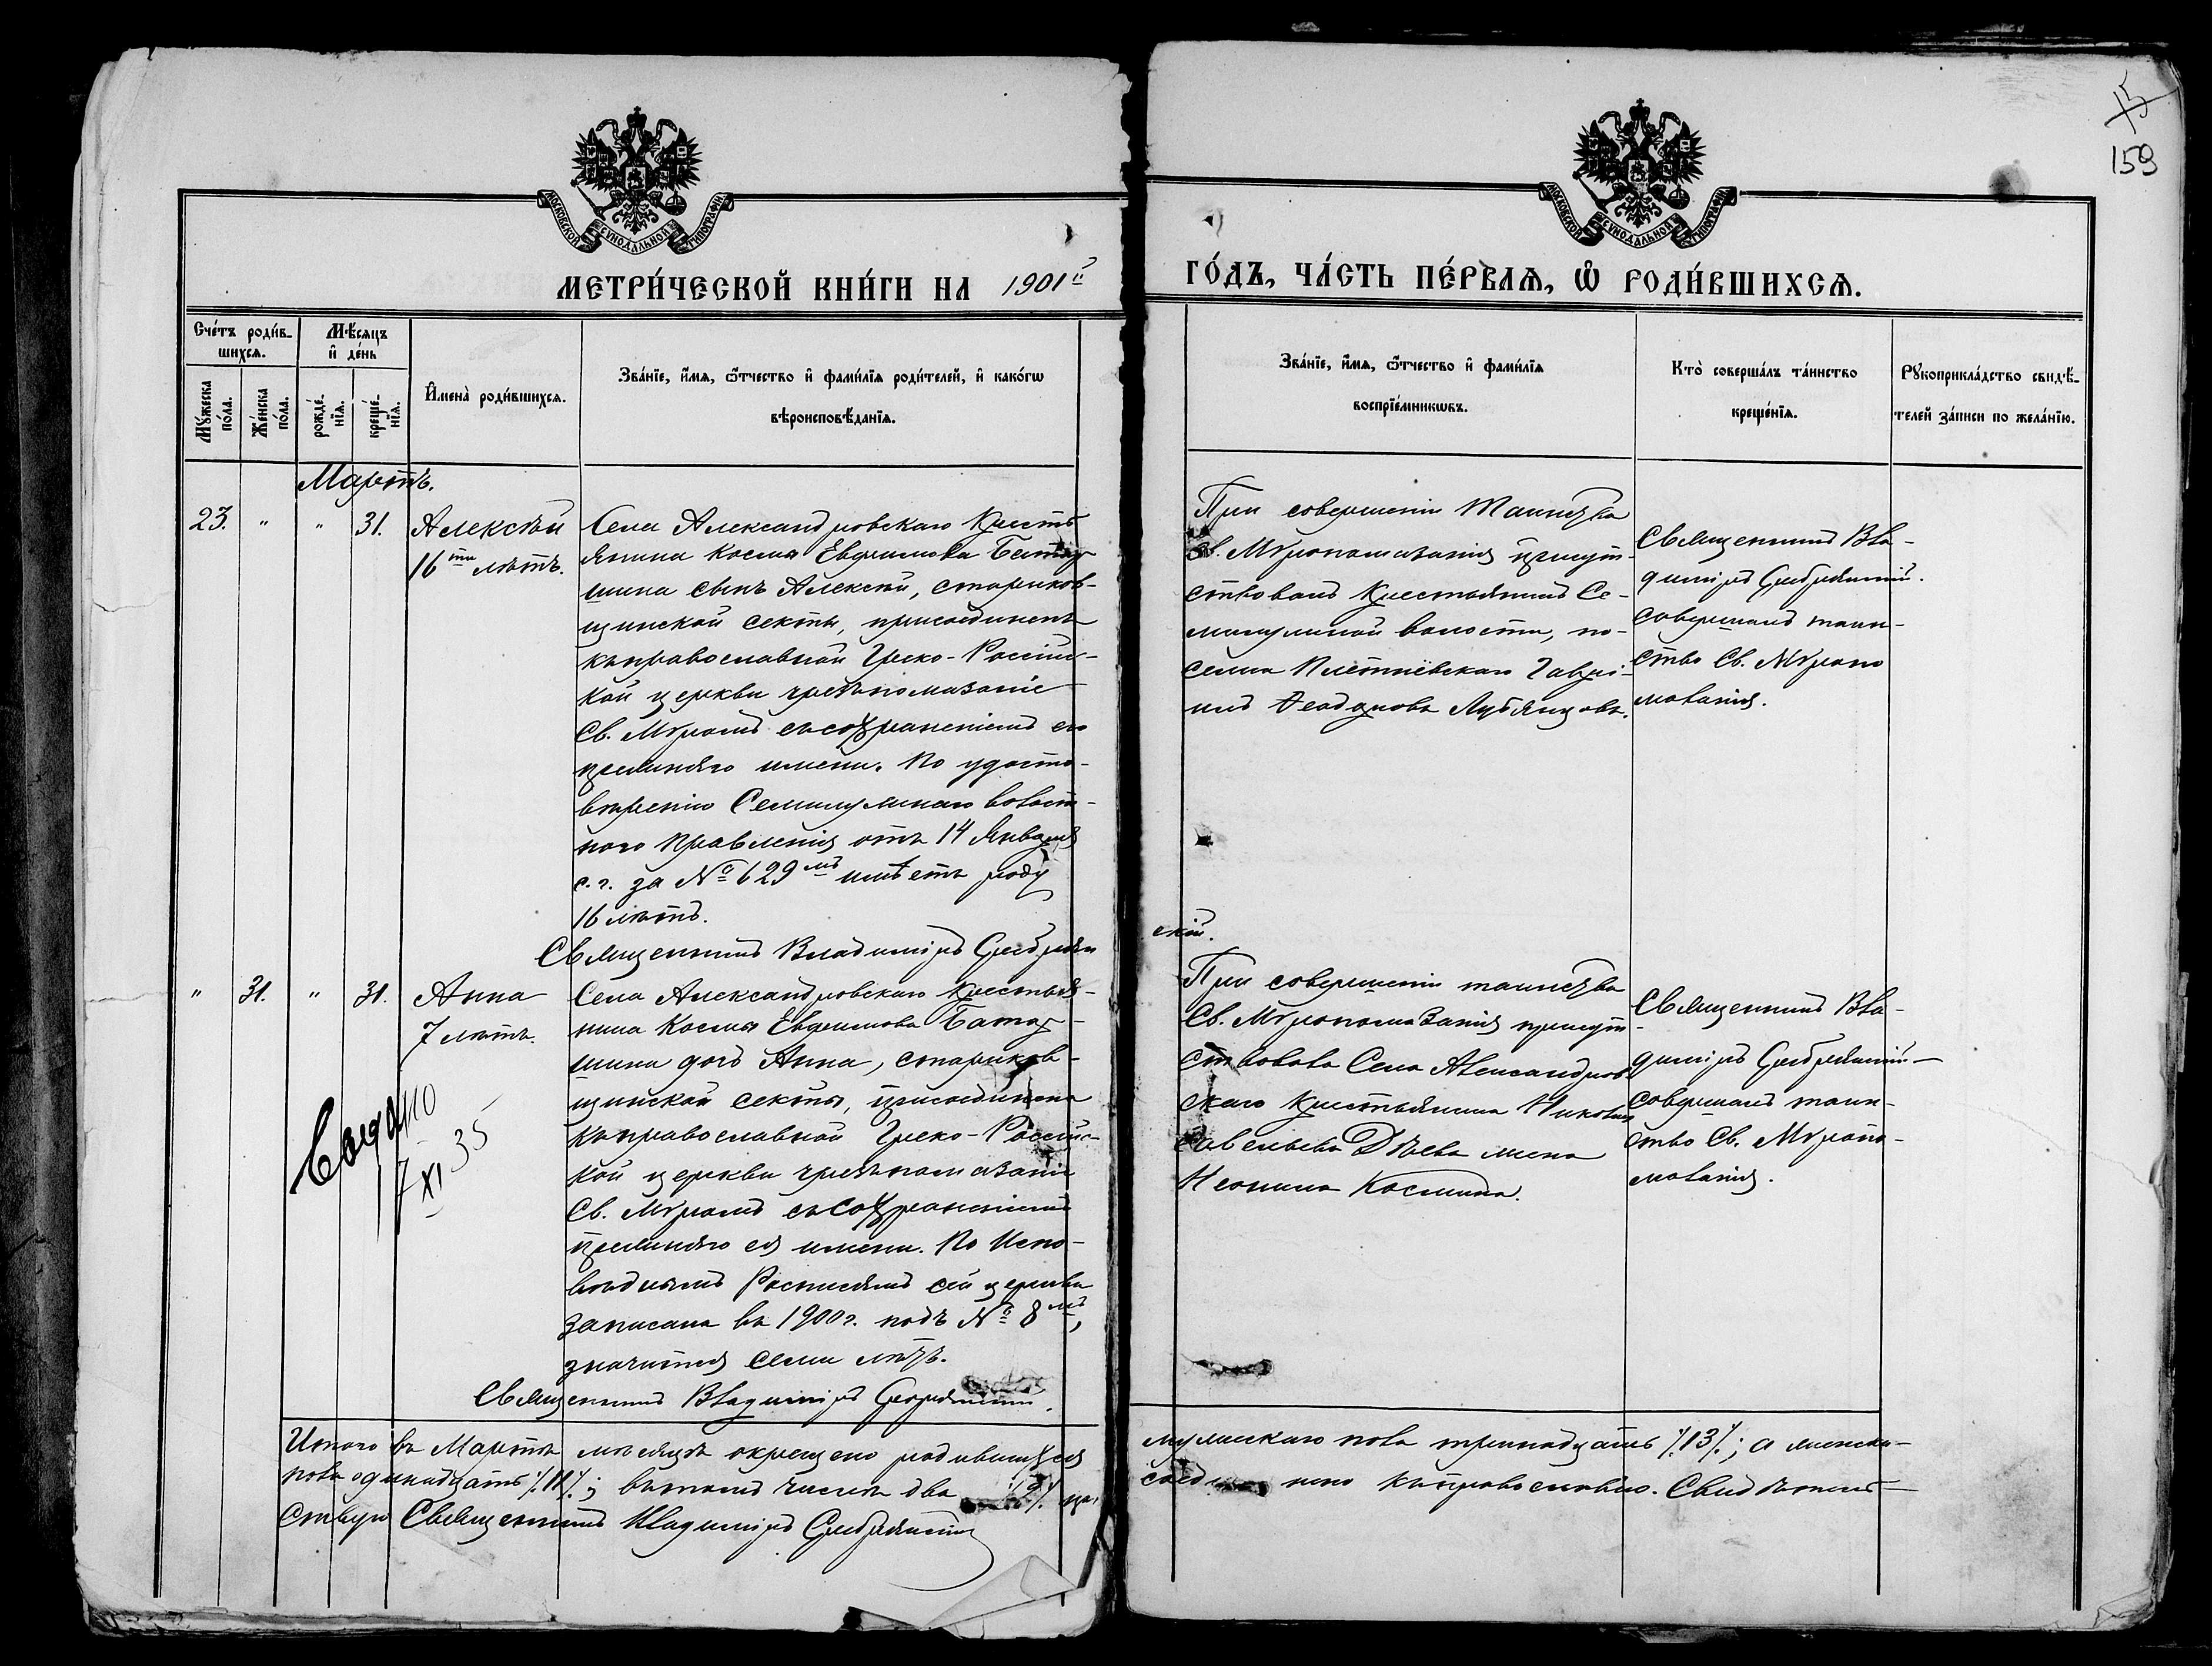 15
159
МОСКОВСКОЙ СѴНОДАЛЬНОЙ ТИПОГРАФІИ
МОСКОВСКОЙ СѴНОДАЛЬНОЙ ТИПОГРАФІИ
МЕТРИ́ЧЕСКОЙ КНИ́ГИ НА 1901й
ГО́ДЪ, ЧА́СТЬ ПЕ́РВАЯ, Ѡ РОДИ́ВШИХСЯ.
Сче́тъ роди́в-
шихся.
Мꙋ́жеска по́ла.
Же́нска по́ла.
Мѣ́сяцъ
и де́нь
рожде́-
нїя.
креще́-
нїя.
И҆мена̀ роди́вшихся.
Зва́нїе, и҆́мя, ѻ҆́тчество и҆ фами́лїя роди́телей, и҆ како́гѡ
вѣроисповѣ́данїя.
Зва́нїе, и҆́мя, ѻ҆́тчество и҆ фами́лїя
воспрїе́мникѡвъ.
Кто̀ соверша́лъ та́инство
креще́нїя.
Рꙋкоприкла́дство свидѣ́-
телей за́писи по жела́нїю.
Мартъ.
23. " " 31.
Алексѣй
16ти лѣтъ.
Села Александровскаго Кресть
янина Космы Евфимова Батар
шина сынъ Алексѣй, стариков-
щинской секты, присоединенъ
къ православной Греко-Россійс-
кой церкви чрезъ помазаніе
Св. Мѵромъ съ сохраненіемъ его
прежняго имени. По удосто-
вѣренію Семилужнаго волост-
ного Правленія отъ 14 Января
с. г. за № 629мъ имѣетъ роду
16 лѣтъ.
Священникъ Владиміръ Серебрян
скій.
При совершеніи Таинства
Св. Мѵропомазанія присут-
ствовалъ Крестьянинъ Се-
милужной волости, по-
селка Плетнёвскаго Гаврі-
илъ Феодоровъ Лубянцовъ.
Священникъ Вла-
диміръ Серебрянскій.
совершалъ таин-
ство Св. Мѵропо
мазанія.
" 31. " 31.
Анна
7 лѣтъ.
Села Александровскаго Крестья-
нина Космы Евфимова Батар-
шина дочь Анна, стариков-
щинской секты, присоединена
къ православной Греко-Россійс-
кой церкви чрезъ помазаніе
Св. Мѵромъ съ сохраненіемъ
прежняго ея имени. По Испо-
вѣднымъ Росписямъ сей церкви
записана въ 1900 г. подъ № 8мъ,
значится семи лѣтъ.
Священникъ Владиміръ Серебрянскій.
При совершеніи таинства
Св. Мѵропомазанія присут-
ствовала Села Александров
скаго Крестьянина Николая
Савельева Дѣева жена
Неонила Космина.
Священникъ Вла-
диміръ Серебрянскій
совершалъ таин-
ство Св. Мѵропо-
мазанія.
Выдано
7 XI 35
Итого въ Мартѣ мѣсяцѣ окрещено родившихся мужескаго пола тринадцать /.13./; а женска-
пола одинадцать /.11./; въ томъ числѣ два /.2./ при соединено къ православію. Свидѣтель-
ствую Священникъ Владиміръ Серебрянскій